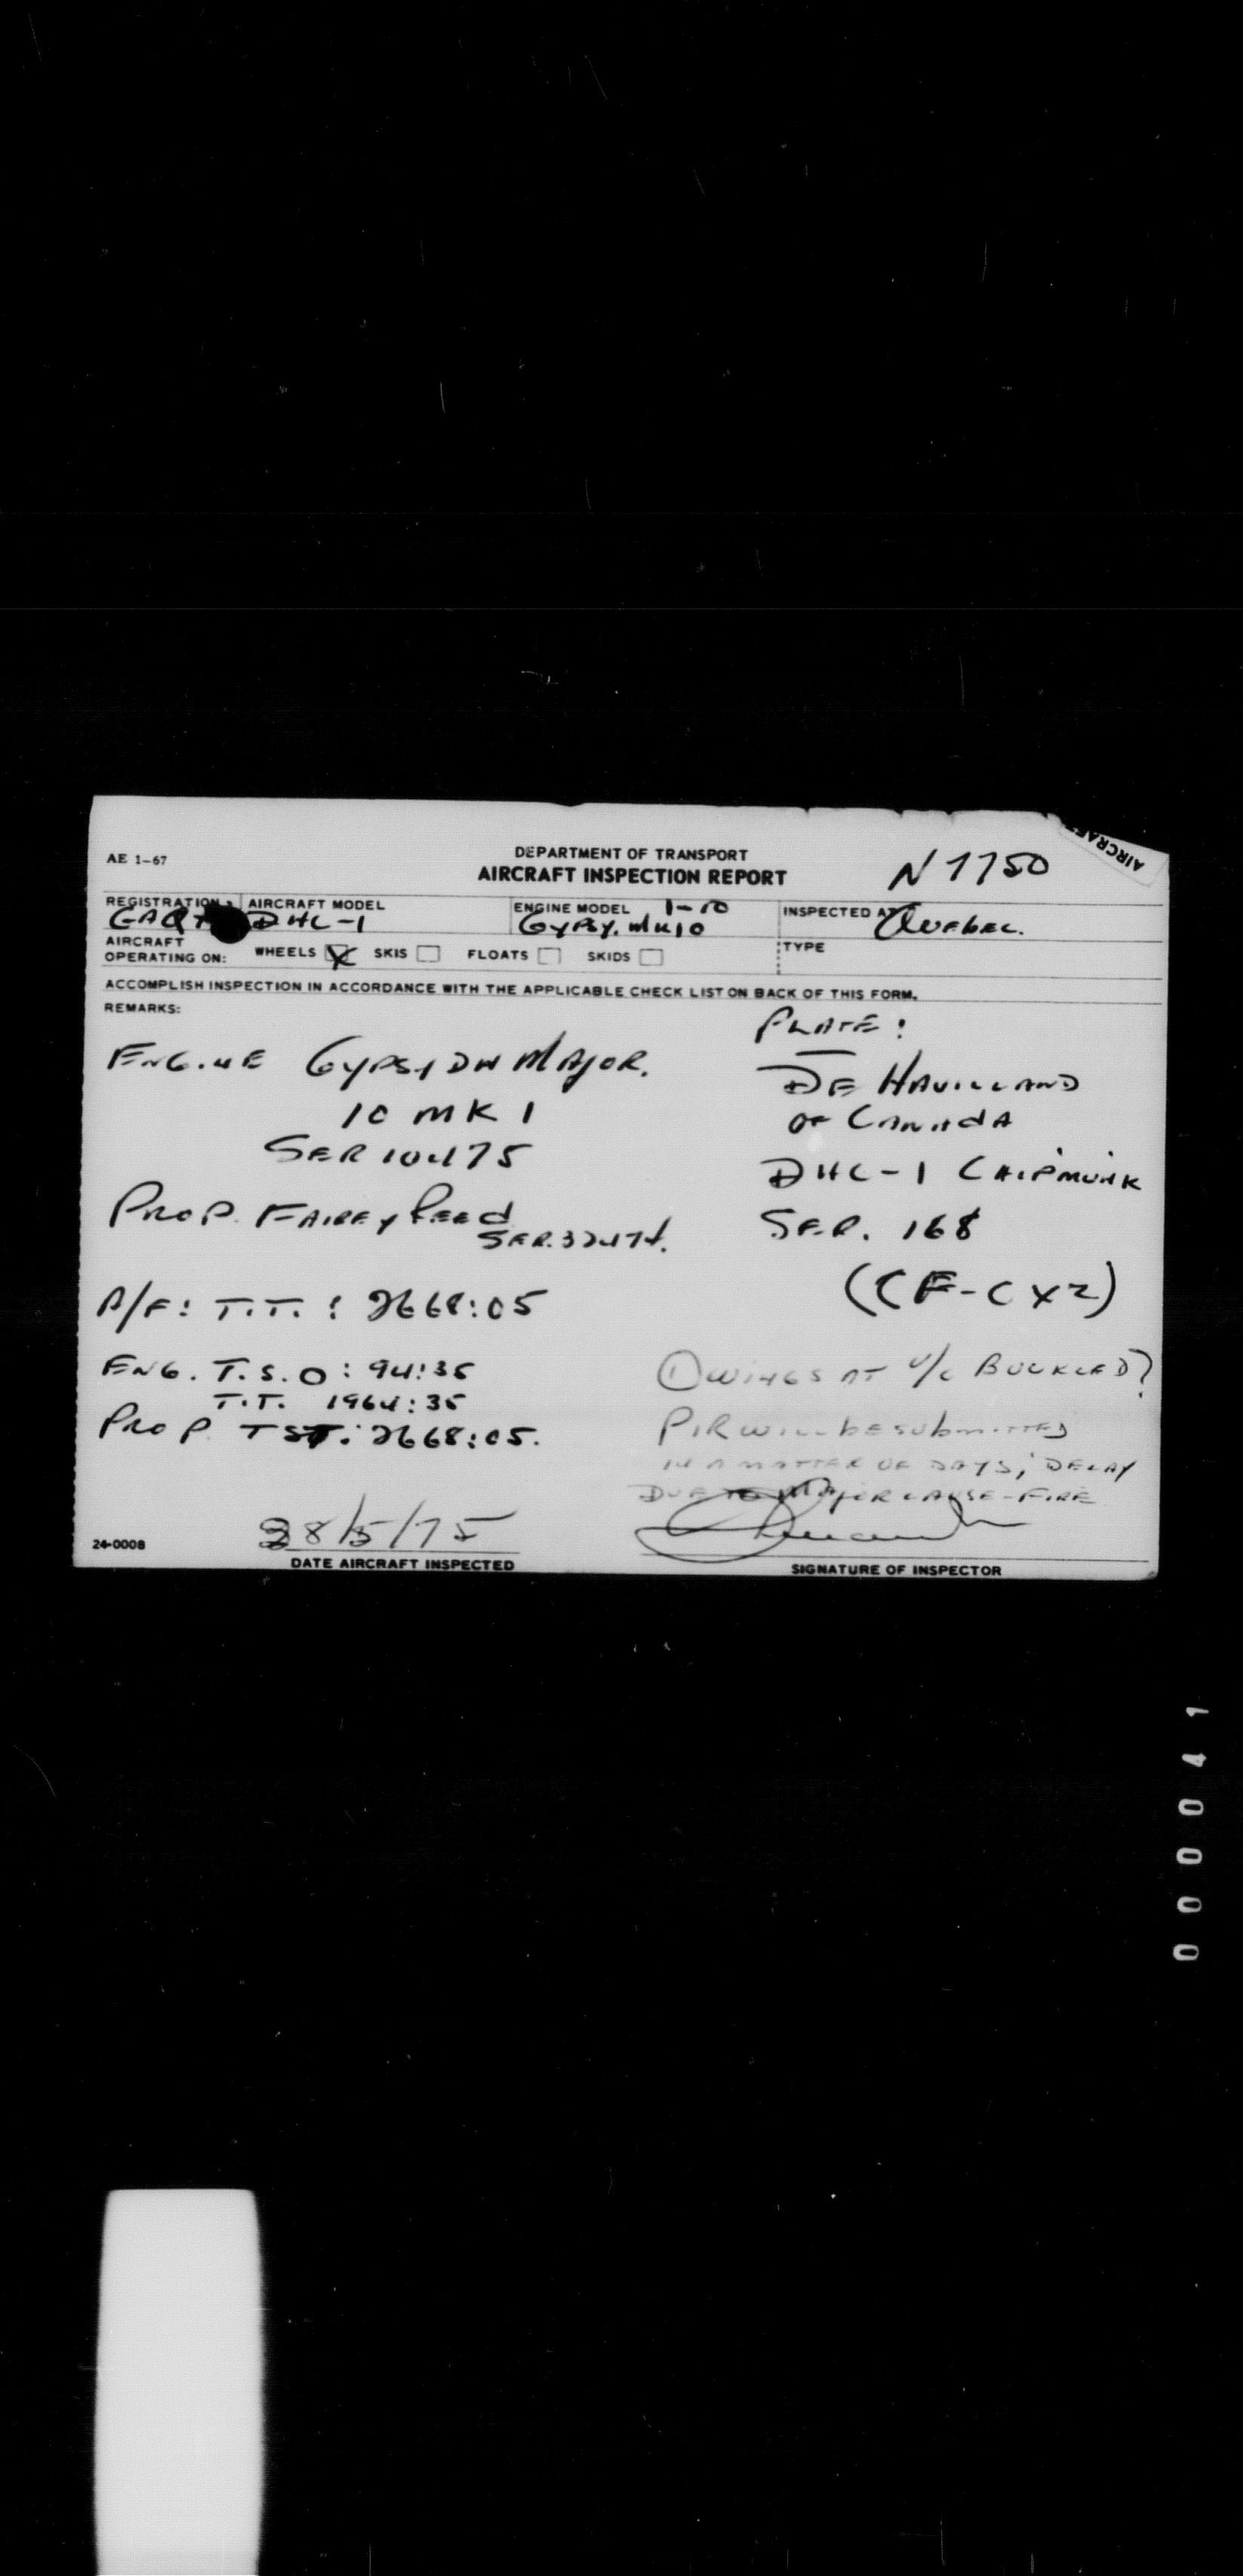 AIRCRAFT
AE 1-67
DEPARTMENT OF TRANSPORT
AIRCRAFT INSPECTION REPORT
N 1750
REGISTRATION AIRCRAFT MODEL ENGINE MODEL 1-10 INSPECTED AT
DHC-1 GYPSY. MK10 QUEBEC.
AIRCRAFT
OPERATING ON: WHEELS SKIS FLOATS SKIDS TYPE
ACCOMPLISH INSPECTION IN ACCORDANCE WITH THE APPLICABLE CHECK LIST ON BACK OF THIS FORM.
REMARKS:
ENGINE GYPSY DH MAJOR.
10 MK 1
SER 10475
PROP. FAIREY REED
SER.
A/F: T.T.: 2668:05
ENG. T.S.O: 94:35
T.T. 1964:35
PROP TST: 2668:05.
PLATE:
DE HAVILLAND
OF CANADA
DHC-1 CHIPMUNK
SER. 168
(CF-CXZ)
① WINGS AT U/C BUCKLED?
PIR WILL BE SUBMITTED
IN A MATTER OF DAYS; DELAY
DUE TO MAJOR CAUSE-FIRE
28/5/75
24-0008
DATE AIRCRAFT INSPECTED
SIGNATURE OF INSPECTOR
000041